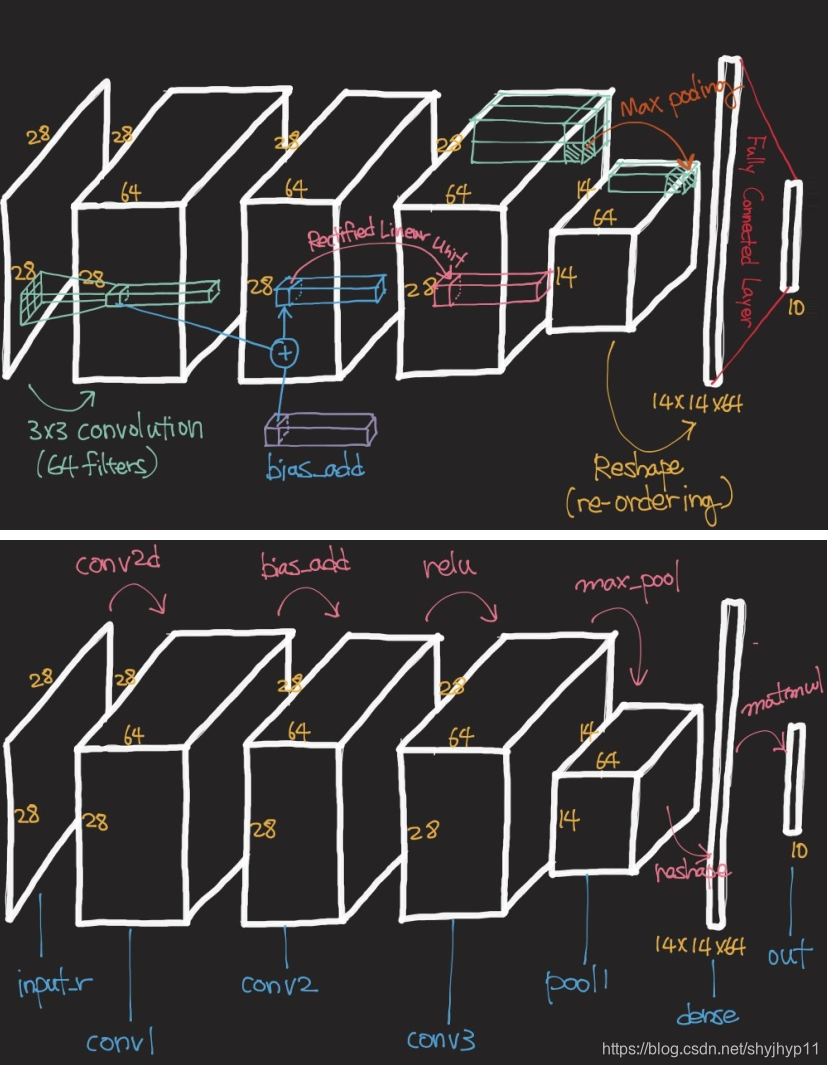 28
28
28
28
64
64
64
Max pooling
14
64
28
28
28
28
14
Rectified Linear Unit
Fully Connected Layer
+
10
14x14x64
3x3 convolution
(64 filters)
bias_add
Reshape
(re-ordering)
conv2d
bias_add
relu
max_pool
28
28
28
28
64
64
64
14
64
matmul
28
28
28
28
14
reshape
10
14x14x64
input_r
conv1
conv2
conv3
pool1
dense
out
https://blog.csdn.net/shyjhyp11